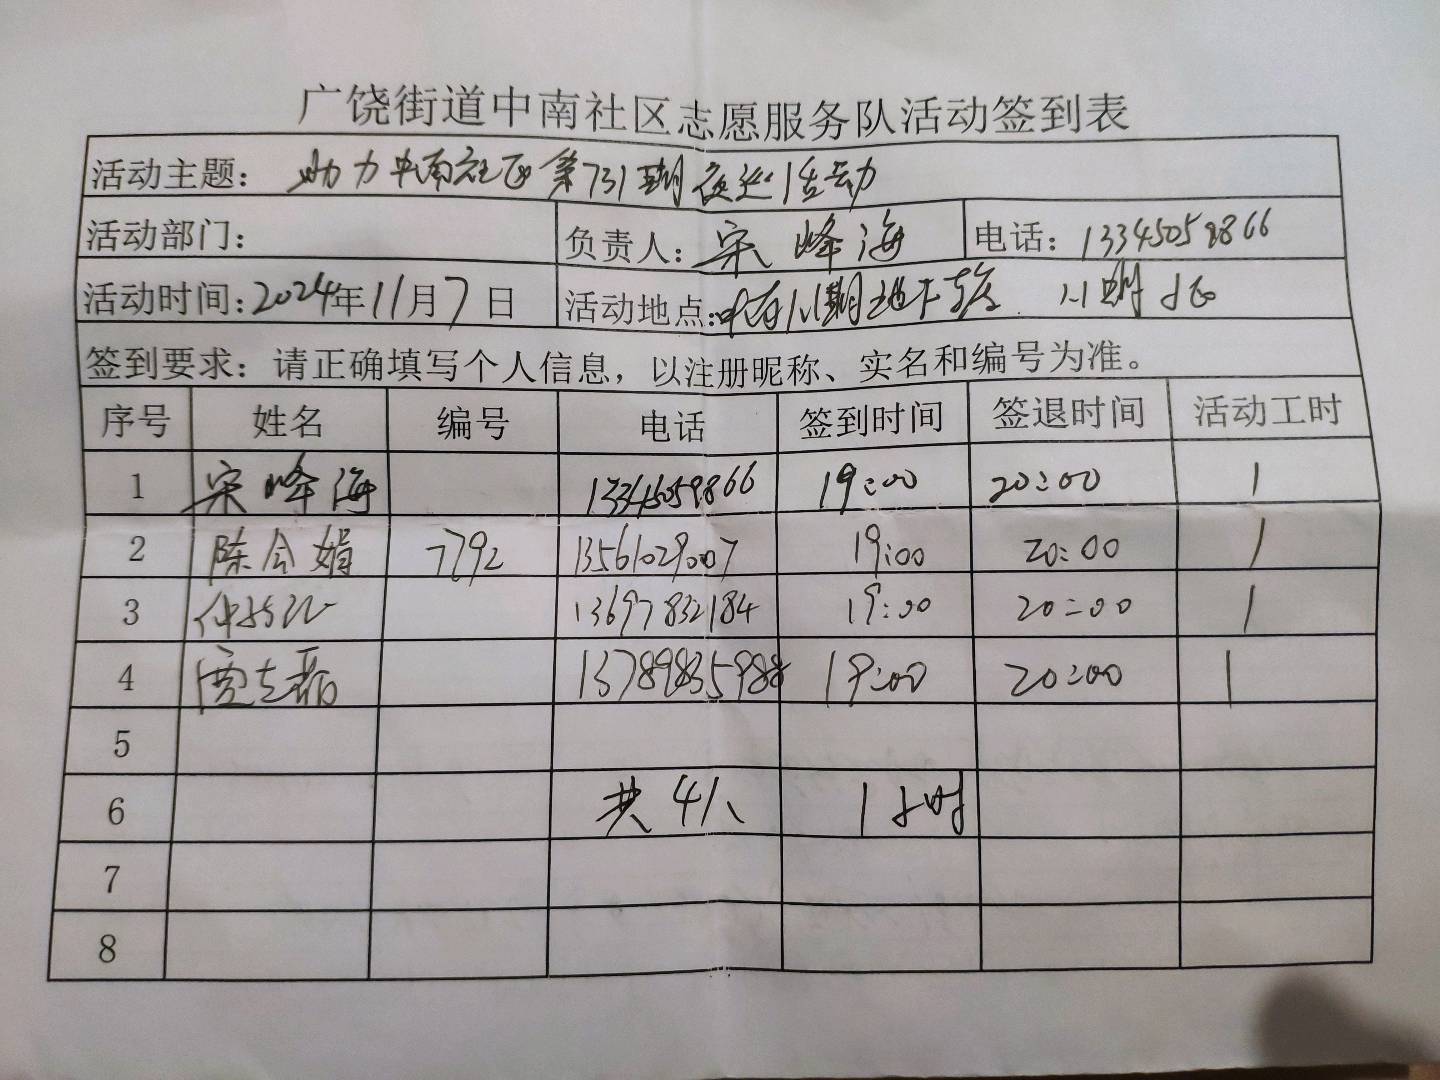 广饶街道中南社区志愿服务队活动签到表
活动主题: 助力中南社区第731期夜巡活动
活动部门:
负责人: 宋峰海
电话: 13345059866
活动时间: 2024年11月7日
活动地点: 期地下 小区
签到要求: 请正确填写个人信息，以注册昵称、实名和编号为准。
序号 姓名 编号 电话 签到时间 签退时间 活动工时
1 宋峰海 13345059866 19:00 20:00 1
2 陈会娟 7792 13561029007 19:00 20:00 1
3 13697832184 19:00 20:00 1
4 贾志磊 13789835988 19:00 20:00 1
5
6 共4人 1小时
7
8